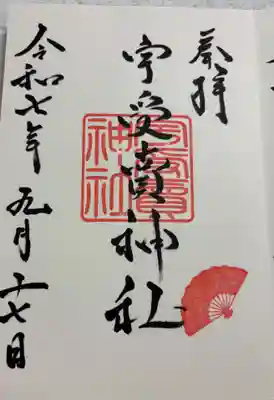 奉拝
宇受賀神社
令和七年 九月 二十七日
神社